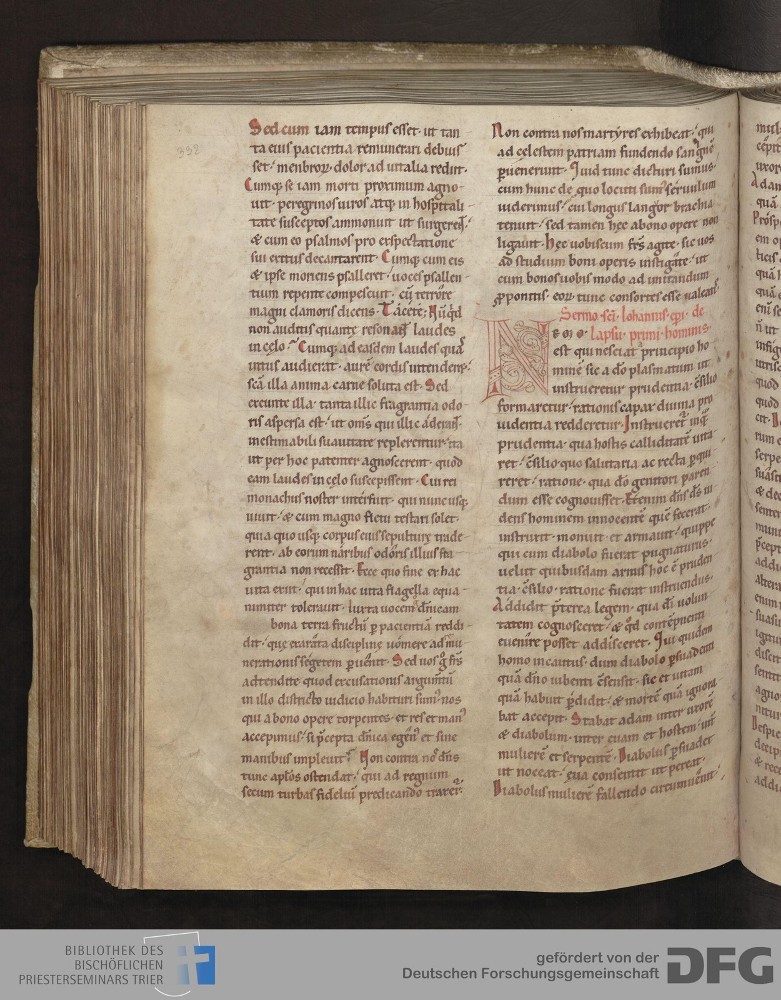 332
Sed cum iam tempus esset · ut tan
ta eius pacientia remunerari debuis
set · menbroꝝ · dolor ad uitalia rediit ·
Cumq; se iam morti proximum agno
uit · peregrinos uiros atq; in hospitali
tate susceptos ammonuit ut surgerent ·
& cum eo psalmos pro exspectatione
sui exitus decantarent · Cumq; cum eis
& ipse moriens psalleret · uoces psallen
tium repente compescuit · cū terrore
magni clamoris dicens · Tacete; Nūqd
non auditis quante resonant laudes
in celo · Cumq; ad easdem laudes quas
intus audierat · aurē cordis intenderet ·
scā illa anima carne soluta est · Sed
exeunte illa · tanta illic fragrantia odo
ris aspersa est · ut omīs qui illic aderant ·
inestimabili suauitate replerentur · ita
ut per hoc patenter agnoscerent · quod
eam laudes in celo suscepissent · Cui rei
monachus noster interfuit · qui nunc usq;
uiuit · & cum magno fletu testari solet ·
quia quo usq; corpus eius sepulturę trade
rent · ab eorum naribus odoris illius fra
grantia non recessit · Ecce quo fine ex hac
uita exiit · qui in hac uita flagella equa
nimiter tolerauit · Iuxta uocem dn̄icam
bona terra fructū ꝑ pacientiā reddi
dit · que exarata discipline uomere ad mu
nerationis segetem ꝑuenit · Sed uos g̊ frs̄
adtendite quod excusationis argumtū
in illo districto iudicio habituri sumꝰ nos
qui a bono opere torpentes · et res et manꝰ
accepimus · si p̄cepta dn̄ica egenꝰ et sine
manibus impleuit · Non contra nos dn̄s
tunc apl̄os ostendat · qui ad regnum
secum turbas fideliū predicando traxert ·
Non contra nos martyres exhibeat · qui
ad celestem patriam fundendo sanguinē
ꝑuenerunt · Quid tunc dicturi sumus ·
cum hunc de quo locuti sumꝰ seruulum
uiderimus · cui longus langor brachia
tenuit · sed tamen hęc a bono opere non
ligauit · Hęc uobiscum frs̄ agite · sic uos
ad studium boni operis instigate · ut
cum bonos uobis modo ad imitandum
ꝓponitis · eoꝝ · tunc consortes esse ualeatis ·
Sermo sc̄i Iohannis · ep̄i · de
lapsu primi hominis ·
NEMO
est qui nesciat principio ho
minē sic a dō plasmatum ut
instrueretur prudentia · c̄silio
formaretur · rationis capax diuina pro
uidentia redderetur · Instrueret̄ inq̄
prudentia · qua hostis calliditatē uita
ret · c̄silio quo salutaria ac recta ꝑqui
reret · ratione · qua dō genitori paren
dum esse cognouisset · Etenim dn̄s ds̄ in
dens hominem innocentē quē fecerat ·
instruxit · monuit et armauit · quippe
qui cum diabolo fuerat pugnaturus ·
uelut quibusdam armis hoc ē pruden
tia · c̄silio · ratione fuerat instruendus ·
Addidit p̄terea legem · qua dī uolun
tatem cognosceret · & qd contēpnenti
euenire posset addisceret · Qui quidem
homo incautus · dum diabolo ꝑsuadenti
quā dn̄o iubenti c̄sensit · sic et uitam
quā habuit ꝑdidit · & mortē quā ignora
bat accepit · Stabat adam inter uxorē
& diabolum · inter euam et hostem · int̄
mulierē et serpentē · Diabolus ꝑsuadet
ut noceat · eua consentit ut pereat ·
Diabolus mulierē fallendo circumuenit ·
BIBLIOTHEK DES
BISCHÖFLICHEN
PRIESTERSEMINARS TRIER
gefördert von der
Deutschen Forschungsgemeinschaft
DFG